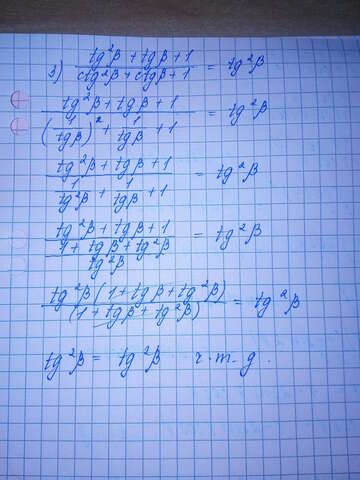 3) (tg²β + tgβ + 1)/(ctg²β + ctgβ + 1) = tg²β
(tg²β + tgβ + 1)/((1/tgβ)² + 1/tgβ + 1) = tg²β
(tg²β + tgβ + 1)/(1/tg²β + 1/tgβ + 1) = tg²β
(tg²β + tgβ + 1)/((1 + tgβ + tg²β)/tg²β) = tg²β
(tg²β (1 + tgβ + tg²β))/((1 + tgβ + tg²β)) = tg²β
tg²β = tg²β ч.т.д.